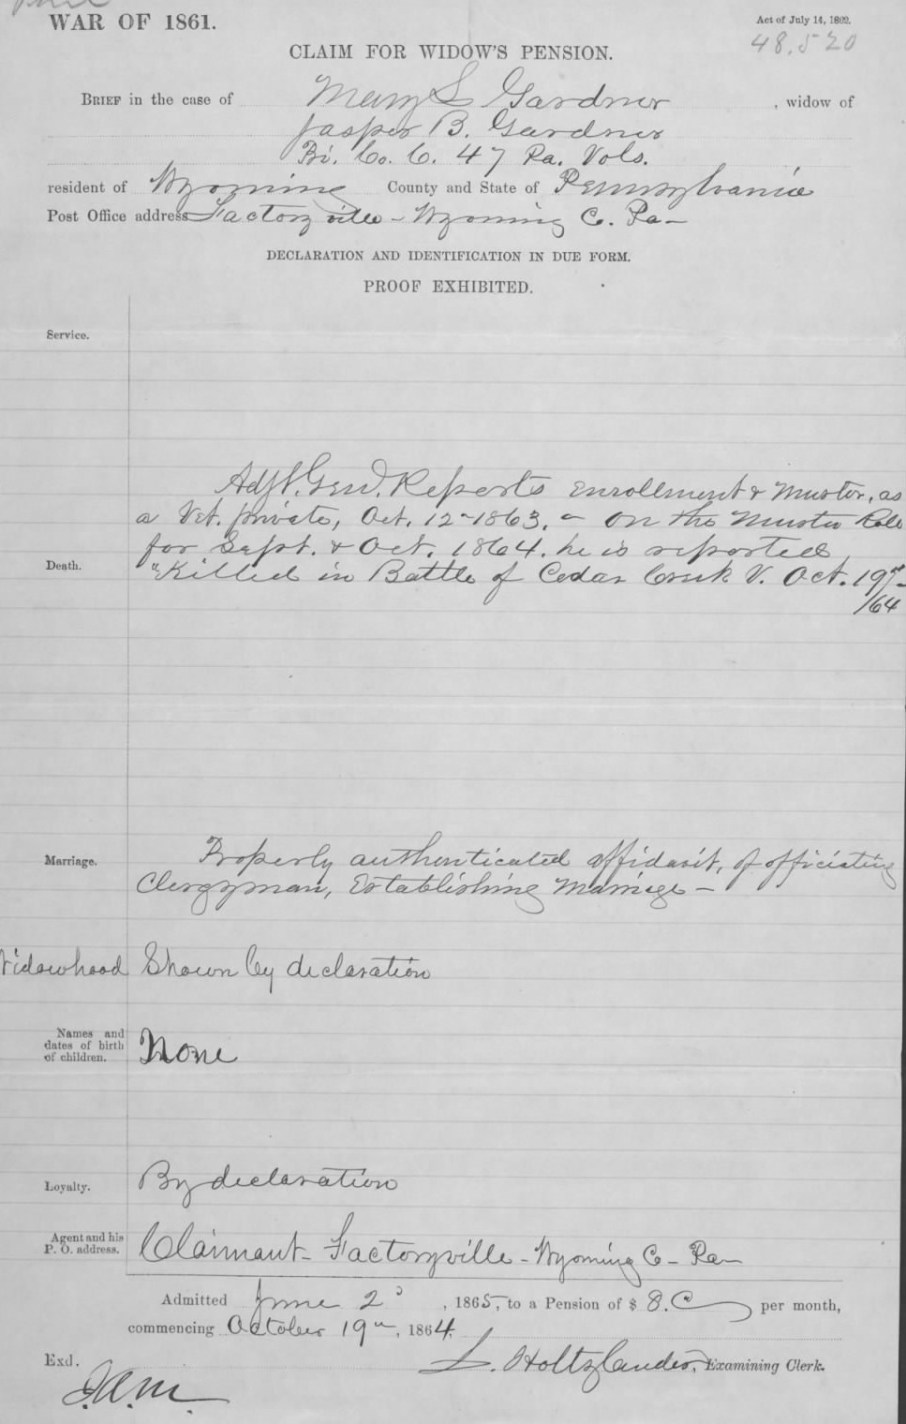 WAR OF 1861.
Act of July 14, 1862.
48,520
CLAIM FOR WIDOW'S PENSION.
BRIEF in the case of Mary S Gardner, widow of
Jasper B. Gardner
Pri. Co. C. 47 Pa. Vols.
resident of Wyoming County and State of Pennsylvania
Post Office address Factoryville - Wyoming C. Pa -
DECLARATION AND IDENTIFICATION IN DUE FORM.
PROOF EXHIBITED.
Service.
Adjt. Genl. Reports Enrollment & Muster, as
a Vet. private, Oct. 12 - 1863. - On the Muster Roll
for Sept. & Oct. 1864. he is reported
Death.
"Killed in Battle of Cedar Creek V. Oct. 19"-
/64
Marriage.
Properly authenticated affidavit, of officiating
Clergyman, Establishing Marriage -
Widowhood Shown by declaration
Names and
dates of birth
of children.
None
Loyalty.
By declaration
Agent and his
P. O. address.
Claimant - Factoryville - Wyoming C - Pa -
Admitted June 2d, 1865, to a Pension of $ 8.00 per month,
commencing October 19th, 1864.
Exd.
L. Holtzlander, Examining Clerk.
J.A.M.